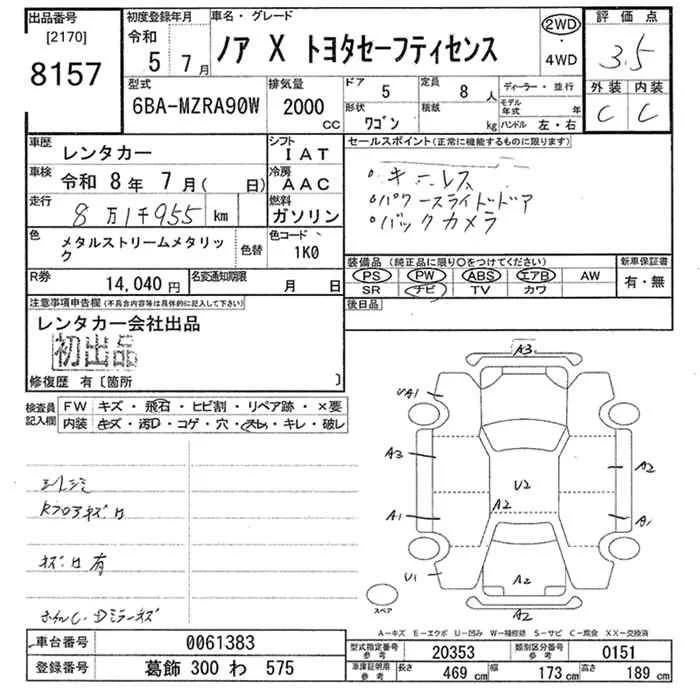 出品番号
[2170]
8157
初度登録年月
令和
5 7月
車名・グレード
ノア X トヨタセーフティセンス
2WD
・
4WD
評価点
3.5
外装 内装
C C
型式
6BA-MZRA90W
排気量
2000
CC
ドア
5
形状
ワゴン
定員
8人
積載
kg
ディーラー・並行
モデル年式 年
ハンドル 左・右
車歴
レンタカー
車検
令和 8年 7月( 日)
走行
8万1千955 km
シフト
IAT
冷房
AAC
燃料
ガソリン
色
メタルストリームメタリック
色替
色コード
1K0
R券
14,040円
名変通知期限
月 日
セールスポイント(正常に機能するものに限ります)
・キーレス
・パワースライドドア
・バックカメラ
装備品(純正品に限り○をつけてください)
PS PW ABS エアB AW
SR ナビ TV カワ
新車保証書
有・無
後日品
注意事項申告欄(不具合内容等は具体的に記入して下さい)
レンタカー会社出品
初出品
修復歴 有〔箇所 〕
検査員記入欄
FW キズ・飛石・ヒビ割・リペア跡・×要
内装 キズ・汚口・コゲ・穴・スレ・キレ・破レ
キズ・ロ有
A3
UA1
A3
A2
U2
A2
A1
A1
U1
A2
A2
スペア
A-キズ E-エクボ U-凹み W-補修跡 S-サビ C-腐食 XX-交換済
車台番号
0061383
登録番号
葛飾 300 わ 575
型式指定番号
参考
20353
類別区分番号
参考
0151
車庫証明用
参考
長さ
469 cm
幅
173 cm
高さ
189 cm